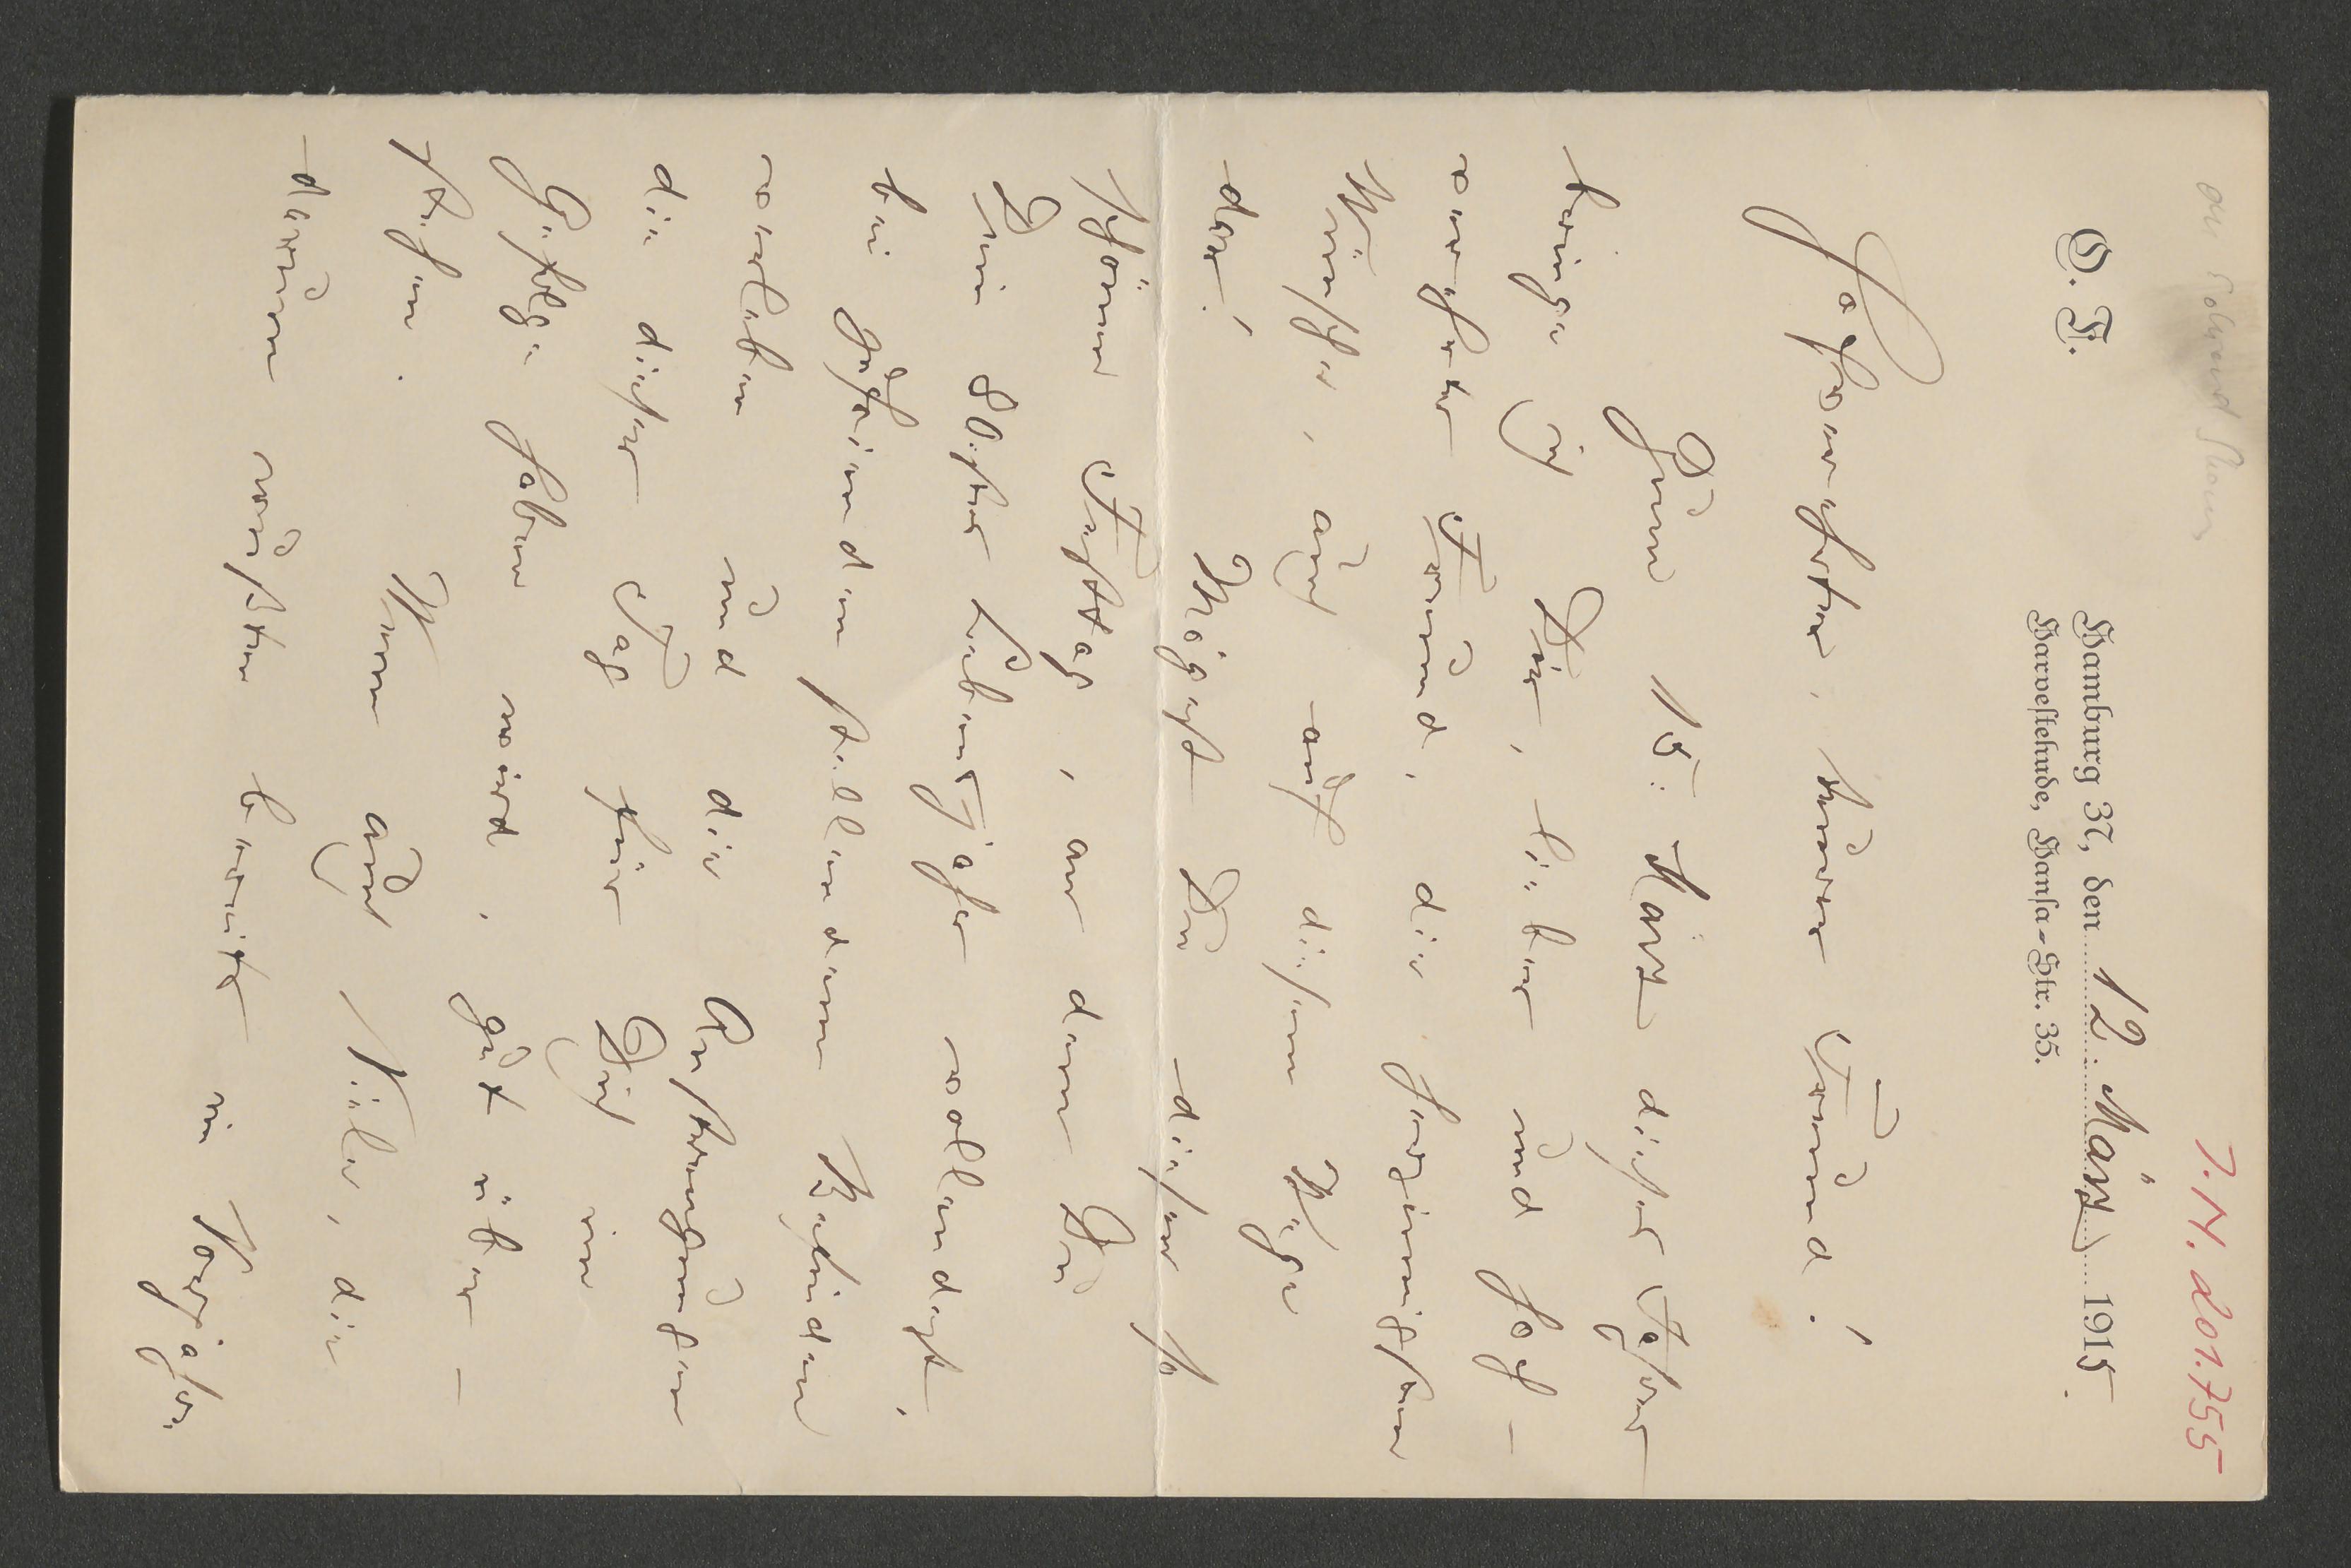 J.N. 201.755
O. F.
Hamburg 37, den 12. März 1915.
Harvestehude, Hansa-Str. 35.
Hochverehrter, theurer Freund!
Zum 15: März dieses Jahres
bringe ich Dir, lieber und hoch-
verehrter Freund, die herzinnigsten
Wünsche, auch auf diesem Wege
dar! Mögest Du diesen so
schönen Festtag, an dem Du
Dein 80stes Lebensjahr vollendest,
bei zufriedenstellendem Befinden
verleben und die Anstrengungen
die dieser Tag für Dich im
Gefolge haben wird, gut über-
stehen. Wenn auch Viele, die
darum wußten bereits im Vorjahre